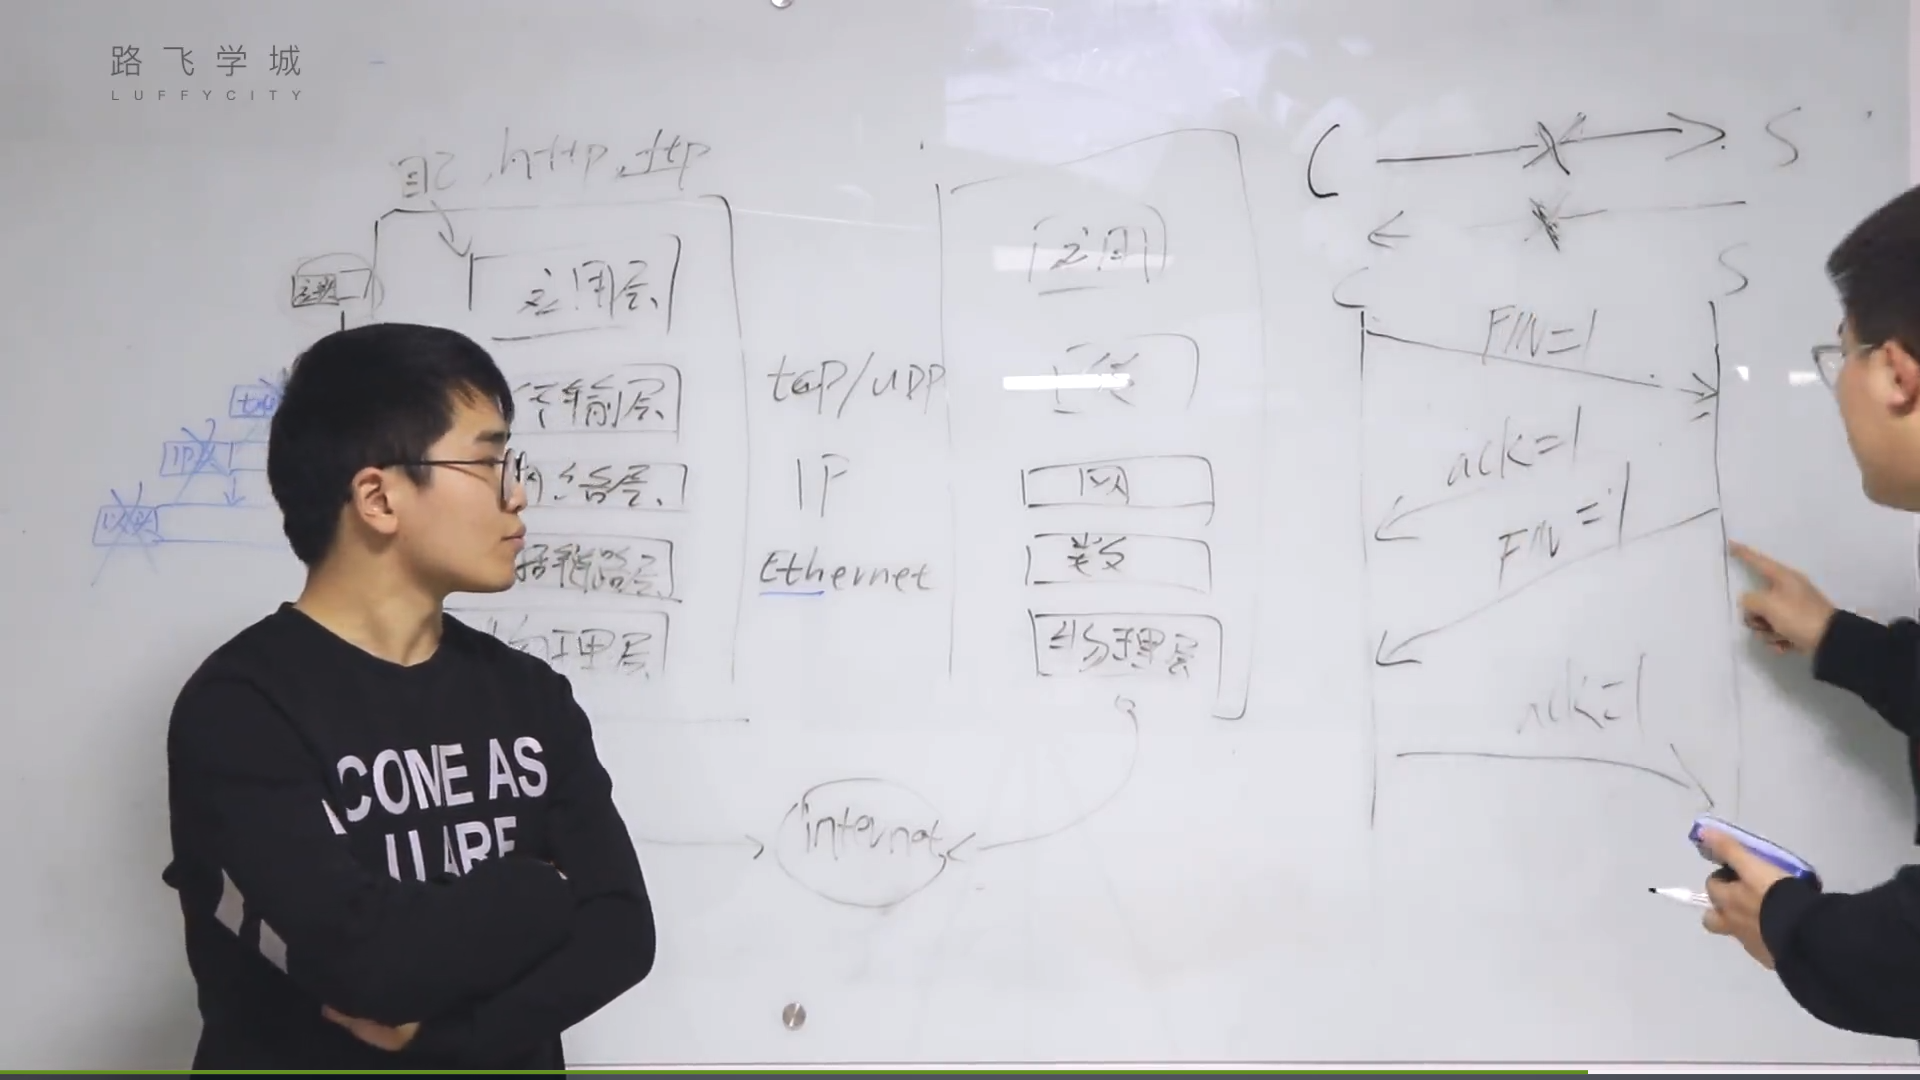 路飞学城
LUFFYCITY
自己,http,ftp
C S
应用层
应用
C S
FIN=1
传输层
tcp/UDP
ack=1
网络层
IP
网
FIN=1
Ethernet
数
物理层
物理层
ack=1
COME AS
U ARE
internet